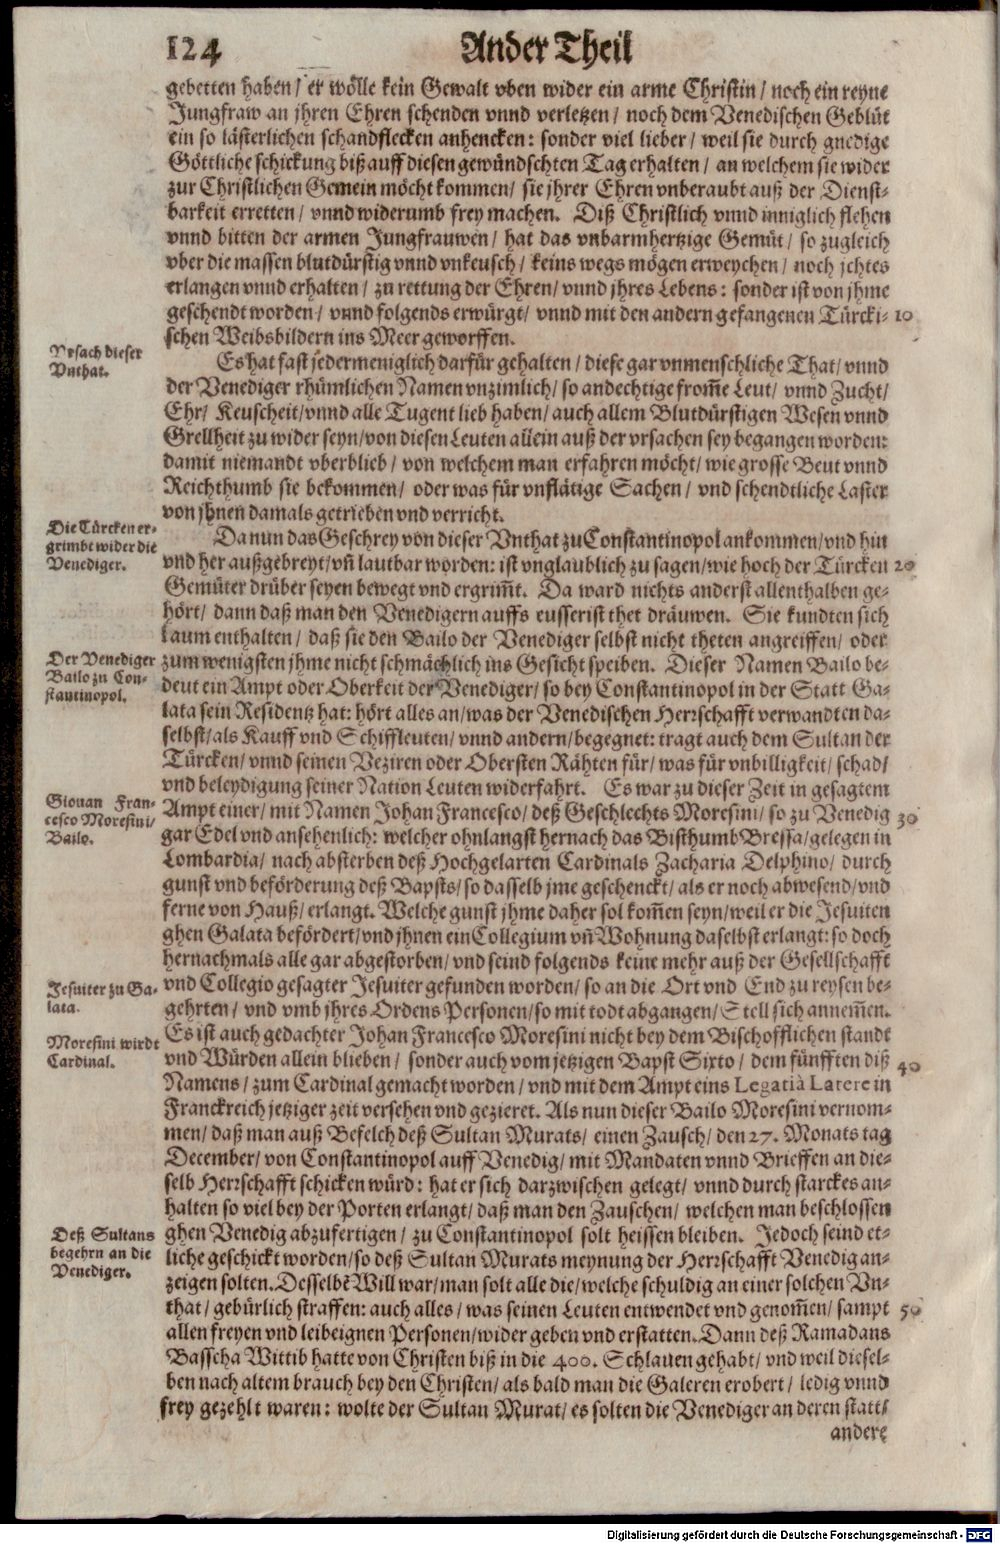 124
Ander Theil
gebetten haben / er wölle kein Gewalt vben wider ein arme Christin / noch ein reyne
Jungfraw an jhren Ehren schenden vnnd verletzen / noch dem Venedischen Geblüt
ein so lästerlichen schandflecken anhencken: sonder viel lieber / weil sie durch gnedige
Göttliche schickung biß auff diesen gewündschten Tag erhalten / an welchem sie wider
zur Christlichen Gemein möcht kommen / sie jhrer Ehren vnberaubt auß der Dienst-
barkeit erretten / vnnd widerumb frey machen. Diß Christlich vnnd inniglich flehen
vnnd bitten der armen Jungfrauwen / hat das vnbarmhertzige Gemüt / so zugleich
vber die massen blutdürstig vnnd vnkeusch / keins wegs mögen erweychen / noch jchtes
erlangen vnnd erhalten / zu rettung der Ehren / vnnd jhres Lebens: sonder ist von jhme
geschendt worden / vnnd folgends erwürgt / vnnd mit den andern gefangenen Türcki- 10
schen Weibsbildern ins Meer geworffen.
Vrsach dieser
Vnthat.
Es hat fast jedermeniglich darfür gehalten / diese gar vnmenschliche That / vnnd
der Venediger rhümlichen Namen vnzimlich / so andechtige from̃e Leut / vnnd Zucht /
Ehr / Keuscheit / vnnd alle Tugent lieb haben / auch allem Blutdürstigen Wesen vnnd
Grellheit zu wider seyn / von diesen Leuten allein auß der vrsachen sey begangen worden:
damit niemandt vberblieb / von welchem man erfahren möcht / wie grosse Beut vnnd
Reichthumb sie bekommen / oder was für vnflätige Sachen / vnd schendtliche Laster
von jhnen damals getrieben vnd verricht.
Die Türcken er-
grimbt wider die
Venediger.
Da nun das Geschrey von dieser Vnthat zu Constantinopol ankommen / vnd hin
vnd her außgebreyt / vñ lautbar worden: ist vnglaublich zu sagen / wie hoch der Türcken 20
Gemüter drüber seyen bewegt vnd ergrim̃t. Da ward nichts anderst allenthalben ge-
hört / dann daß man den Venedigern auffs eusserist thet dräuwen. Sie kundten sich
kaum enthalten / daß sie den Bailo der Venediger selbst nicht theten angreiffen / oder
Der Venediger
Bailo zu Con-
stantinopol.
zum wenigsten jhme nicht schmächlich ins Gesicht speiben. Dieser Namen Bailo be-
deut ein Ampt oder Oberkeit der Venediger / so bey Constantinopol in der Statt Ga-
lata sein Residentz hat: hört alles an / was der Venedischen Herrschafft verwandten da-
selbst / als Kauff vnd Schiffleuten / vnnd andern / begegnet: tragt auch dem Sultan der
Türcken / vnnd seinen Veziren oder Obersten Rähten für / was für vnbilligkeit / schad /
vnd beleydigung seiner Nation Leuten widerfahrt. Es war zu dieser Zeit in gesagtem
Giouan Fran-
cesco Moresini /
Bailo.
Ampt einer / mit Namen Johan Francesco / deß Geschlechts Moresini / so zu Venedig 30
gar Edel vnd ansehenlich: welcher ohnlangst hernach das Bisthumb Bressa / gelegen in
Lombardia / nach absterben deß Hochgelarten Cardinals Zacharia Delphino / durch
gunst vnd beförderung deß Bapsts / so dasselb jme geschenckt / als er noch abwesend / vnd
ferne von Hauß / erlangt. Welche gunst jhme daher sol kom̃en seyn / weil er die Jesuiten
ghen Galata befördert / vnd jhnen ein Collegium vñ Wohnung daselbst erlangt: so doch
hernachmals alle gar abgestorben / vnd seind folgends keine mehr auß der Gesellschafft
Jesuiter zu Ga-
lata.
vnd Collegio gesagter Jesuiter gefunden worden / so an die Ort vnd End zu reysen be-
gehrten / vnd vmb jhres Ordens Personen / so mit todt abgangen / Stell sich annem̃en.
Moresini wirdt
Cardinal.
Es ist auch gedachter Johan Francesco Moresini nicht bey dem Bischofflichen standt
vnd Würden allein blieben / sonder auch vom jetzigen Bapst Sixto / dem fünfften diß 40
Namens / zum Cardinal gemacht worden / vnd mit dem Ampt eins Legati à Latere in
Franckreich jetziger zeit versehen vnd gezieret. Als nun dieser Bailo Moresini vernom-
men / daß man auß Befelch deß Sultan Murats / einen Zausch / den 27. Monats tag
December / von Constantinopol auff Venedig / mit Mandaten vnnd Brieffen an die-
selb Herrschafft schicken würd: hat er sich darzwischen gelegt / vnnd durch starckes an-
halten so viel bey der Porten erlangt / daß man den Zauschen / welchen man beschlossen
Deß Sultans
begehrn an die
Venediger.
ghen Venedig abzufertigen / zu Constantinopol solt heissen bleiben. Jedoch seind et-
liche geschickt worden / so deß Sultan Murats meynung der Herrschafft Venedig an-
zeigen solten. Desselbẽ Will war / man solt alle die / welche schuldig an einer solchen Vn-
that / gebürlich straffen: auch alles / was seinen Leuten entwendet vnd genom̃en / sampt 50
allen freyen vnd leibeignen Personen / wider geben vnd erstatten. Dann deß Ramadans
Basscha Wittib hatte von Christen biß in die 400. Schlauen gehabt / vnd weil diesel-
ben nach altem brauch bey den Christen / als bald man die Galeren erobert / ledig vnnd
frey gezehlt waren: wolte der Sultan Murat / es solten die Venediger an deren statt /
andere
Digitalisierung gefördert durch die Deutsche Forschungsgemeinschaft - DFG